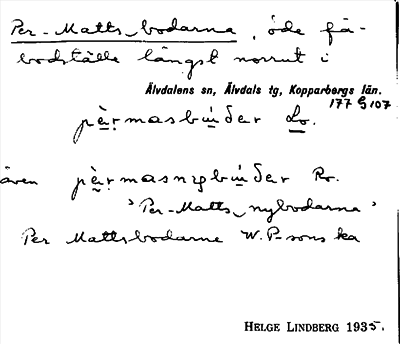 Per-Matts-bodarna, öde fä-
bodställe längst norrut i
Älvdalens sn, Älvdals tg, Kopparbergs län.
177 G 107
pèr̥masbúðer Lo.
även pèr̥masnybúðer Ro.
'Per-Matts-nybodarna'
Per Mattsbodarne W. P-sons ka
HELGE LINDBERG 1935.